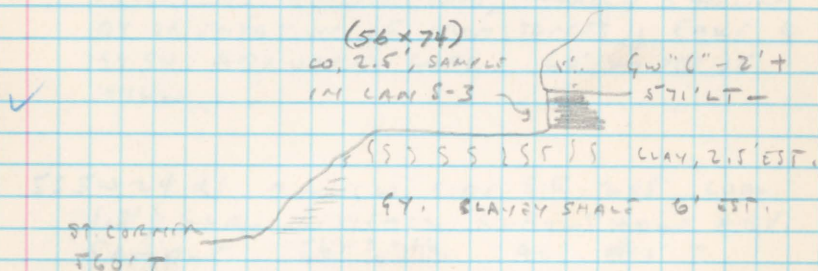 (56 x 74)
CO, 2.5', SAMPLE
IN CAN S-3
GW "C" - 2' +
571' LT -
CLAY, 2.5' EST.
GY. CLAYEY SHALE 6' EST.
ST. CORNER
560' T